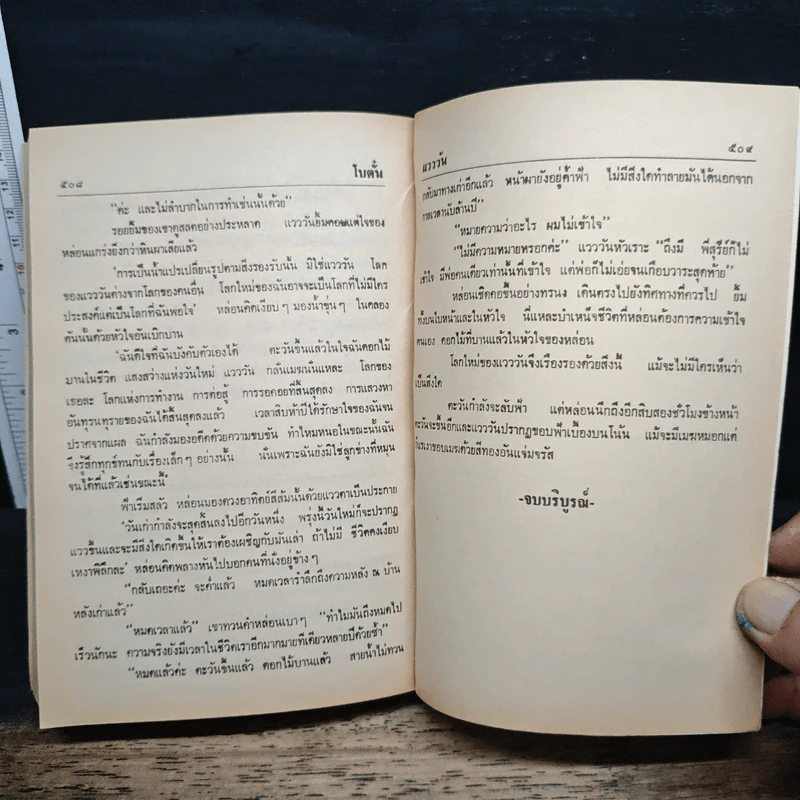 ๕๐๘ โบตั๋น
"ค่ะ และไม่ลำบากในการทำเช่นนั้นด้วย"
รอยยิ้มของเขาดูสลดอย่างประหลาด แวววันยิ้มตอบแต่ใจของ
หล่อนแกร่งยิ่งกว่าหินผาเสียแล้ว
'การเป็นน้ำแปรเปลี่ยนรูปตามสิ่งรองรับนั้น มิใช่แวววัน โลก
ของแวววันต่างจากโลกของคนอื่น โลกใหม่ของฉันอาจจะเป็นโลกที่ไม่มีใคร
ประสงค์แต่เป็นโลกที่ฉันพอใจ' หล่อนคิดเงียบๆ มองน้ำขุ่นๆ ในคลอง
คันนั้นด้วยหัวใจอันเบิกบาน
'ฉันดีใจที่ฉันบังคับตัวเองได้ ตะวันขึ้นแล้วในใจฉันดอกไม้
บานในชีวิต แสงสว่างแห่งวันใหม่ แวววัน กลั่นเมฆนั่นแหละ โลกของ
เธอละ โลกแห่งการทำงาน การต่อสู้ การรอคอยที่สิ้นสุดลง การแสวงหา
อันทุรนทุรายของฉันได้สิ้นสุดลงแล้ว เวลาสิบห้าปีได้รักษาใจของฉันจน
ปราศจากแผล ฉันกำลังมองอดีตด้วยความขบขัน ทำไมหนอในขณะนั้นฉัน
จึงรู้สึกทุกข์ทนกับเรื่องเล็กๆ อย่างนั้น นั่นเพราะฉันยังมิใช่ลูกข่างที่หมุน
จนได้ที่แล้วเช่นขณะนี้'
ฟ้าเริ่มสลัว หล่อนมองดวงอาทิตย์สีส้มนั้นด้วยแววตาเป็นประกาย
'วันเก่ากำลังจะสุดสิ้นลงไปอีกวันหนึ่ง พรุ่งนี้วันใหม่ก็จะปรากฏ
แววขึ้นและจะมีสิ่งใดเกิดขึ้นให้เราต้องเผชิญกับมันเล่า ถ้าไม่มี ชีวิตคงเงียบ
เหงาพิลึกละ' หล่อนคิดพลางหันไปบอกคนที่นั่งอยู่ข้างๆ
"กลับเถอะค่ะ จะค่ำแล้ว หมดเวลารำลึกถึงความหลัง ณ บ้าน
หลังเก่าแล้ว"
"หมดเวลาแล้ว" เขาทวนคำหล่อนเบาๆ "ทำไมมันถึงหมดไป
เร็วนักนะ ความจริงยังมีเวลาในชีวิตเราอีกมากมายทีเดียวหลายปีด้วยซ้ำ"
"หมดแล้วค่ะ ตะวันขึ้นแล้ว ดอกไม้บานแล้ว สายน้ำไม่ทวน
แวววัน ๕๐๙
กลับมาทางเก่าอีกแล้ว หน้าผายังอยู่ค้ำฟ้า ไม่มีสิ่งใดทำลายมันได้นอกจาก
กาลเวลานับล้านปี"
"หมายความว่าอะไร ผมไม่เข้าใจ"
"ไม่มีความหมายหรอกค่ะ" แวววันหัวเราะ "ถึงมี พี่สุรีย์ก็ไม่
เข้าใจ มีพ่อคนเดียวเท่านั้นที่เข้าใจ แต่พ่อก็ไม่เอ่ยจนเกือบวาระสุดท้าย"
หล่อนเชิดคอขึ้นอย่างทรนง เดินตรงไปยังทิศทางที่ควรไป ยิ้ม
ทั้งบนใบหน้าและในหัวใจ นี่แหละบำเหน็จชีวิตที่หล่อนต้องการความเข้าใจ
ตนเอง ดอกไม้ที่บานแล้วในหัวใจของหล่อน
โลกใหม่ของแวววันจึงเรืองรองด้วยสิ่งนี้ แม้จะไม่มีใครเห็นว่า
เป็นสิ่งใด
ตะวันกำลังจะลับฟ้า แต่หล่อนนึกถึงอีกสิบสองชั่วโมงข้างหน้า
ตะวันจะขึ้นอีกและแวววันปรากฏขอบฟ้าเบื้องบนโน้น แม้จะมีเมฆหมอกแต่
ก็แรเงาขอบเมฆด้วยสีทองอันแจ่มจรัส
-จบบริบูรณ์-